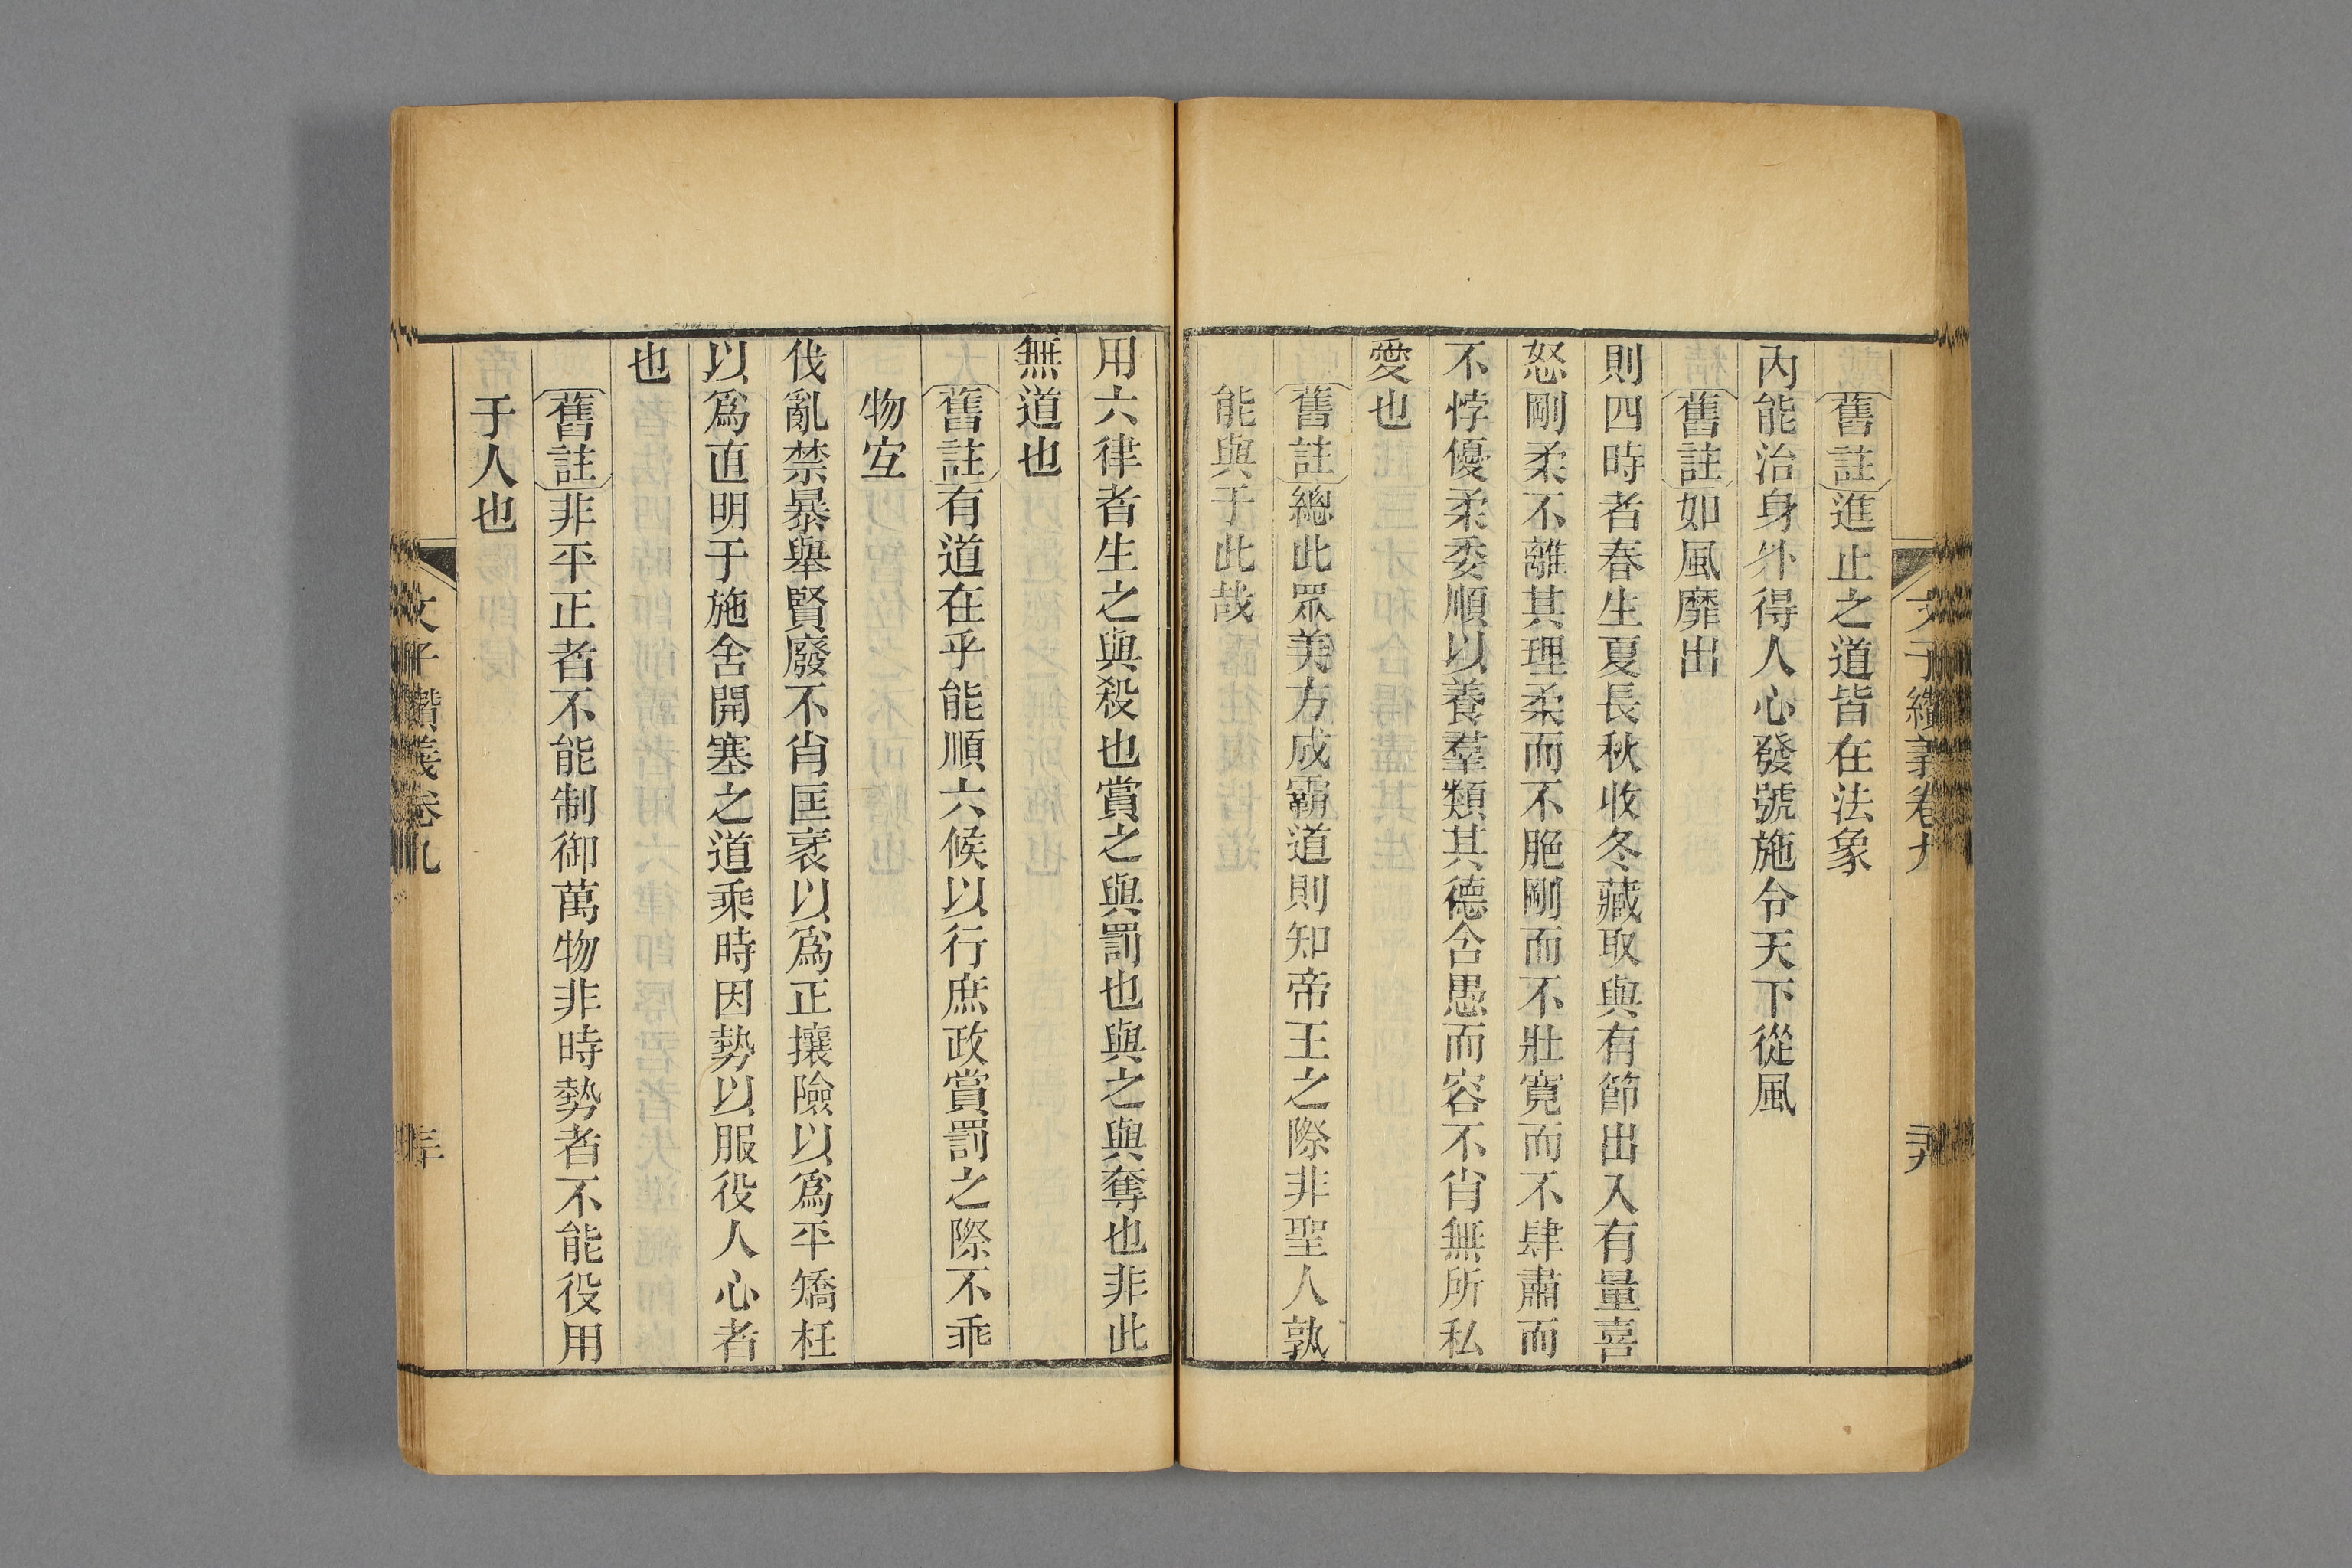 文子纘義卷九
舊註進止之道皆在法象
內能治身外得人心發號施令天下從風
舊註如風靡出
則四時者春生夏長秋收冬藏取與有節出入有量喜
怒剛柔不離其理柔而不脆剛而不壯寬而不肆肅而
不悖優柔委順以養羣類其德含愚而容不肖無所私
愛也
舊註總此眾美方成霸道則知帝王之際非聖人孰
能與于此哉
用六律者生之與殺也賞之與罰也與之與奪也非此
無道也
舊註有道在乎能順六候以行庶政賞罰之際不乖
物宐
伐亂禁暴舉賢廢不肖匡衺以爲正攘險以爲平矯枉
以爲直明于施舍開塞之道乘時因勢以服役人心者
也
舊註非平正者不能制御萬物非時勢者不能役用
于人也
文子纘義卷九